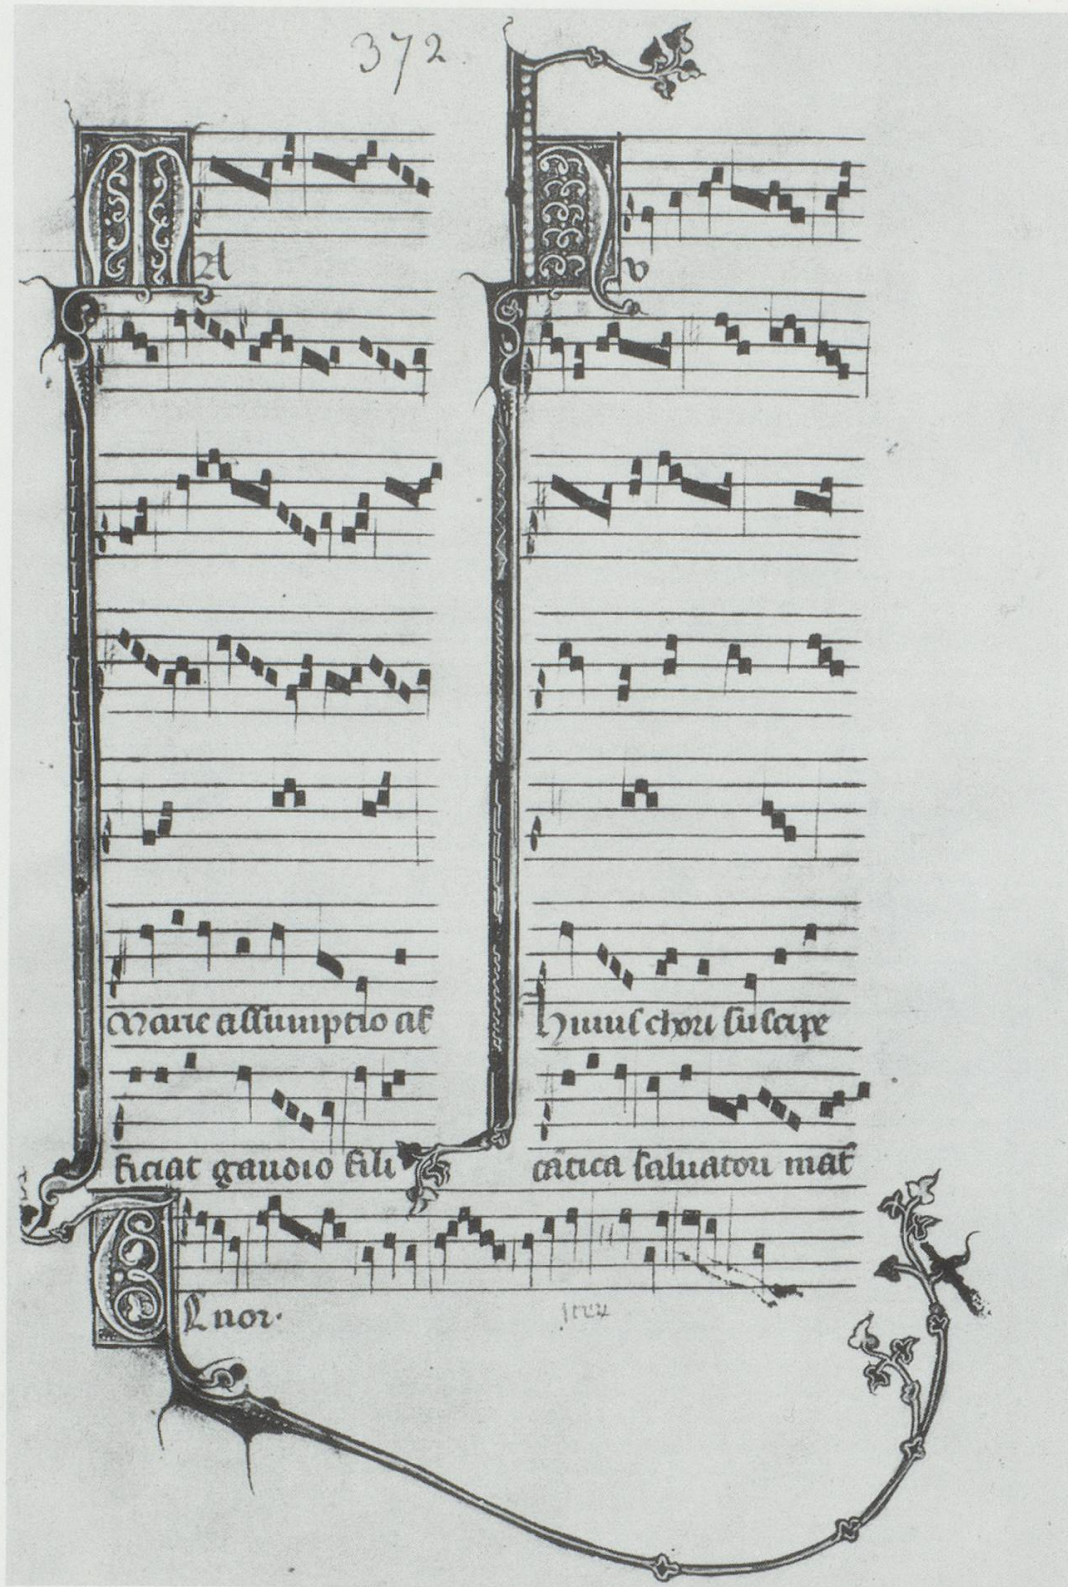 372
MA
Marie assumptio af
ficiat gaudio fili
Hv
huius chori suscipe
cātica saluatori mat
Tenor.